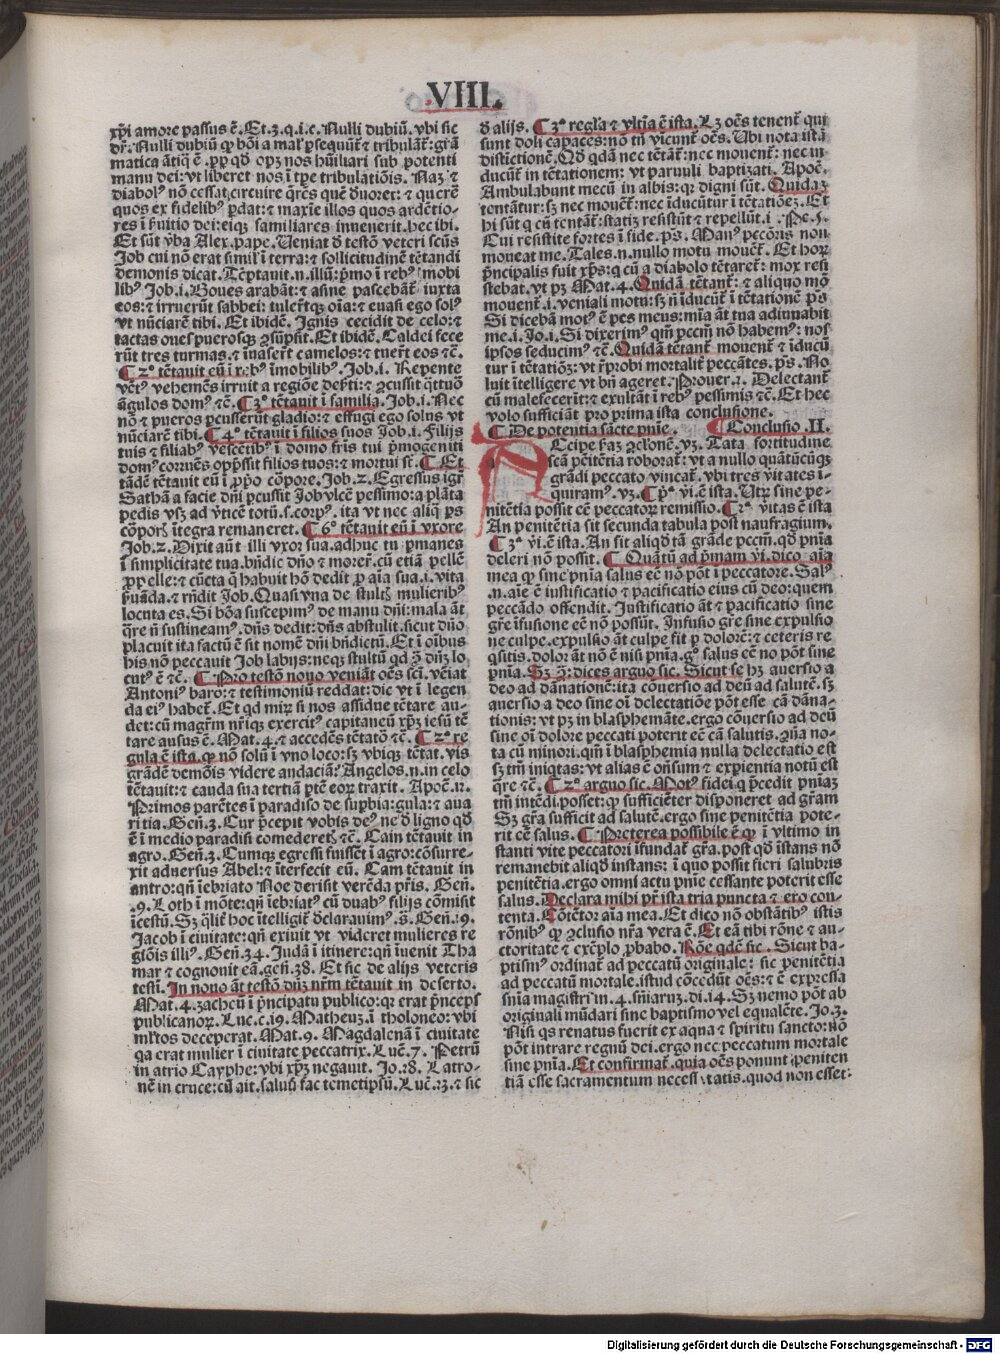 VIII.
xp̄i amore passus ē. Et.3.q.i.c. Nulli dubiū. vbi sic
dr̄. Nulli dubiū ꝙ boni a mal' ꝓsequūt̄ & tribulāt̄: grā
matica ātiqͥ ē. ꝓp̄ qd̄ opꝫ nos hūiliari sub potenti
manu dei: vt liberet nos i tꝑe tribulatiōis. Naꝫ &
diabolꝰ nō cessat circuire q̄rēs quē d̄uoret: & querē
quos ex fidelibꝰ ꝑdat: & maxīe illos quos ardētio-
res i ẜuitio dei: eiqꝫ familiares inuenerit. hec ibi.
Et sūt v̄ba Alex. pape. Ueniat d̄ testō veteri scūs
Job cui nō erat simil' i terra: & sollicitudinē tētandi
demonis dicat. Tēptauit.n. illū: p̄mo i rebꝰ mobi
libꝰ Job.i. Boues arabāt: & asine pascebāt iuxta
eos: & irruerūt sabbei: tulerūtqꝫ oīa: & euasi ego solꝰ
vt nūciarē tibi. Et ibidē. Ignis cecidit de celo: &
tactas oues puerosqꝫ ↄsūpsit. Et ibidē. Caldei fece
rūt tres turmas. & inuaserūt camelos: & tuer̄t eos &c̄.
¶ 2° tētauit eū i rebꝰ īmobilibꝰ. Job.i. Repente
vētꝰ vehemēs irruit a regiōe deẜti: & ↄcussit q̄ttuor
āgulos domꝰ &c̄. ¶ 3° tētauit i familia. Job.i. Nec
nō & pueros ꝑcusserūt gladio: & effugi ego solus vt
nūciarē tibi. ¶ 4° tētauit i filios suos Job.i. Filijs
tuis & filiabꝰ vescētibꝰ i domo fris tui p̄mogeniti
domꝰ corruēs opp̄ssit filios tuos: & mortui st̄. ¶ Et
tādē tētauit eū i ꝓprio corpore. Job.2. Egressus igr̄
Sathā a facie dn̄i ꝑcussit Job vlcē pessimo: a plāta
pedis vsqꝫ ad v̄ticē totū.s. corpꝰ. ita vt nec aliqͥ ps
corporis itegra remaneret. ¶ 6° tētauit eū i vxore
Job.2. Dixit aūt illi vxor sua. adhuc tu ꝑmanes
i simplicitate tua. bn̄dic dn̄o & morer̄. cū etiā pellē
ꝓ pelle: & cūcta q̄ habuit hō dedit ꝓ aīa sua.i. vita
ẜuāda. & rn̄dit Job. Quasi vna de stultis mulieribꝰ
locuta es. Si bōa suscepimꝰ de manu dn̄i: mala āt
q̄re n̄ sustineamꝰ. dn̄s dedit: dn̄s abstulit. sicut dn̄o
placuit ita factū ē sit nomē dn̄i bn̄dictū. Et i oībus
his nō peccauit Job labijs: neqꝫ stultū qd̄ ꝯ̄ dn̄ꝫ lo
cutꝰ ē &c̄. ¶ Pro testō nouo veniāt oēs scī. vēiat
Antoniꝰ baro: & testimoniū reddat: dic vt i legen
da eiꝰ habet̄. Et qd̄ mir̄ si nos assidue tētare au-
det: cū magr̄m nr̄iqꝫ exercitꝰ capitaneū xp̄ꝫ iesū tē
tare ausus ē. Mat.4. & accedēs tētatō &c̄. ¶ 2° re
gula ē ista. ꝙ nō solū i vno loco: sꝫ vbiqꝫ tētat. vis
grādē demōis videre audaciā? Angelos.n. in celo
tētauit: & cauda sua tertiā ptē eor̄ traxit. Apoc̄.12.
Primos parētes i paradiso de suꝑbia: gula: & aua
ritia. Gen̄.3. Cur p̄cepit vobis deꝰ ne d̄ ligno qd̄
ē i medio paradisi comederetis &c̄. Cain tētauit in
agro. Gen̄.3. Cumqꝫ egressi fuissēt i agro: cōsurre-
xit aduersus Abel: & iterfecit eū. Cam tētauit in
antro: qn̄ iebriato Noe derisit verēda pr̄is. Gen̄.
.9. Loth i mōte: qn̄ iebriatꝰ cū duabꝰ filijs cōmisit
icestū. Sꝫ q̄lit̄ hoc itelligit̄ d̄clarauimꝰ.s. Gen̄.19.
Jacob i ciuitate: qn̄ exiuit vt videret mulieres re
giōis illiꝰ. Gen̄.34. Judā i itinere: qn̄ iuenit Tha
mar & cognouit eā. gen̄.38. Et sic de alijs veteris
testi. In nouo āt testō dn̄ꝫ nr̄m tētauit in deserto.
Mat.4. zacheū i p̄ncipatu publico: qꝛ erat p̄nceps
publicanoꝝ. Luc.c.19. Matheuꝫ i tholoneo: vbi
ml'tos deceperat. Mat.9. Magdalenā i ciuitate
qa erat mulier i ciuitate peccatrix. Luc̄.7. Petrū
in atrio Cayphe: vbi xp̄ꝫ negauit. Jo.18. Latro-
nē in cruce: cū ait. saluū fac temetipsū. Luc̄.23. & sic
d̄ alijs. ¶ 3° regl'a & vltīa ē ista. Lꝫ oēs tenent̄ qui
sunt doli capaces: nō tn̄ vicunt̄ oēs. Ubi nota istā
distictionē. Qd̄ qdā nec tētāt̄: nec mouent̄: nec in
ducūt̄ in tētationem: vt paruuli baptizati. Apoc̄.
Ambulabunt mecū in albis: qꝛ digni sūt. Quidaꝫ
tentātur: sꝫ nec mouēt̄: nec iducūtur i tētatiōeꝫ. Et
hi sūt q cū tentāt̄: statiꝫ resistūt & repellūt.i. Pe.5.
Cui resistite fortes i fide. ps̄. Manꝰ peccōris non
moueat me. Tales.n. nullo motu mouēt̄. Et hoꝝ
p̄ncipalis fuit xp̄s: q cū a diabolo tētaret̄: mox resi
stebat. vt pꝫ Mat.4. Quidā tētant̄: & aliquo mō
mouent̄.i. veniali motu: sꝫ n̄ iducūt̄ i tētationē ps̄
Si dicebā motꝰ ē pes meus: mīa āt tua adiuuabit
me.i. Jo.i. Si dixerimꝰ qm̄ pccm̄ nō habemꝰ: nos
ipsos seducimꝰ &c̄. Quidā tētant̄ mouent̄ & iducū
tur i tētatiōꝫ: vt r̄probi mortalit̄ peccātes. ps̄. No
luit itelligere vt bn̄ ageret. Prouer.2. Delectant̄
cū malefecerīt: & exultāt i rebꝰ pessimis &c̄. Et hec
volo sufficiāt pro prima ista conclusione.
¶ De potentia sācte pnīe. ¶ Conclusio .II.
REcipe scd̄aꝫ ↄclonē. vꝫ. Tata fortitudine
scā penitētia roborat̄: vt a nullo quātūcūqꝫ
grādi peccato vincat̄. vbi tres vitates i-
quiram̄ꝰ. vꝫ. ¶ pᵃ vi. ē ista. Utꝝ sine pe-
nitētia possit eē peccatoꝝ remissio. ¶ 2ᵃ v̄itas ē ista
An penitētia sit secunda tabula post naufragium.
¶ 3ᵃ vi. ē ista. An sit aliqd̄ tā grāde pccm̄. qd̄ pnīa
deleri nō possit. ¶ Quātū ad p̄mam vi. dico. aīa
mea ꝙ sine pnīa salus eē nō pōt i peccatore. Salꝰ
.n. aīe ē iustificatio & pacificatio eius cū deo: quem
peccādo offendit. Justificatio āt & pacificatio sine
grē ifusione eē nō possūt. Infusio grē sine expulsio
ne culpe. expulsio āt culpe fit ꝑ dolorē: & ceteris re
qsitis. dolor āt nō ē nisi pnīa. g° salus eē no pōt sine
pnīa. Sꝫ ꝯ̄: dices arguo sic. Sicut se hꝫ auersio a
deo ad dānationē: ita cōuersio ad deū ad salutē. sꝫ
auersio a deo sine oī delectatiōe pōt esse cā dāna-
tionis: vt pꝫ in blasphemāte. ergo cōuersio ad deū
sine oī dolore peccati poterit eē cā salutis. ꝯ̄na no-
ta cū minori. qm̄ i blasphemia nulla delectatio est
sꝫ tm̄ iniqtas: vt alias ē on̄sum & exꝑientia notū est
qre &c̄. ¶ 2° arguo sic. Motꝰ fidei q p̄cedit pniaꝫ
tm̄ intēdi. posset: ꝙ sufficiēter disponeret ad grām
Sꝫ grā sufficit ad salutē. ergo sine penitētia pote-
rit cē salus. ¶ Preterea possibile ē ꝙ i vltimo in
stanti vite peccatori ifundat̄ grā. post qd̄ istans nō
remanebit aliqd̄ instans: i quo possit fieri salubris
penitētia. ergo omni actu pnīe cessante poterit esse
salus. Declara mihi pr̄ ista tria puncta & ero con-
tenta. Cōtētor aīa mea. Et dico nō obstātibꝰ istis
rōnibꝰ ꝙ ↄclusio nr̄a vera ē. Et eā tibi rōne & au-
ctoritate & exēplo ꝓbabo. Rōe qdē sic. Sicut ba-
ptismꝰ ordinat̄ ad peccatū originale: sic penitētia
ad peccatū mortale. istud cōcedūt oēs: & ē expressa
snīa magistri in.4. sn̄iaruꝫ. di.14. Sꝫ nemo pōt ab
originali mūdari sine baptismo vel equalēte. Jo.3.
Nisi qs renatus fuerit ex aqua & spiritu sancto: nō
pōt intrare regnū dei. ergo nec peccatum mortale
sine pnīa. Et confirmat̄. quia oēs ponunt peniten
tiā esse sacramentum necessitatis. quod non esset:
Digitalisierung gefördert durch die Deutsche Forschungsgemeinschaft - DFG